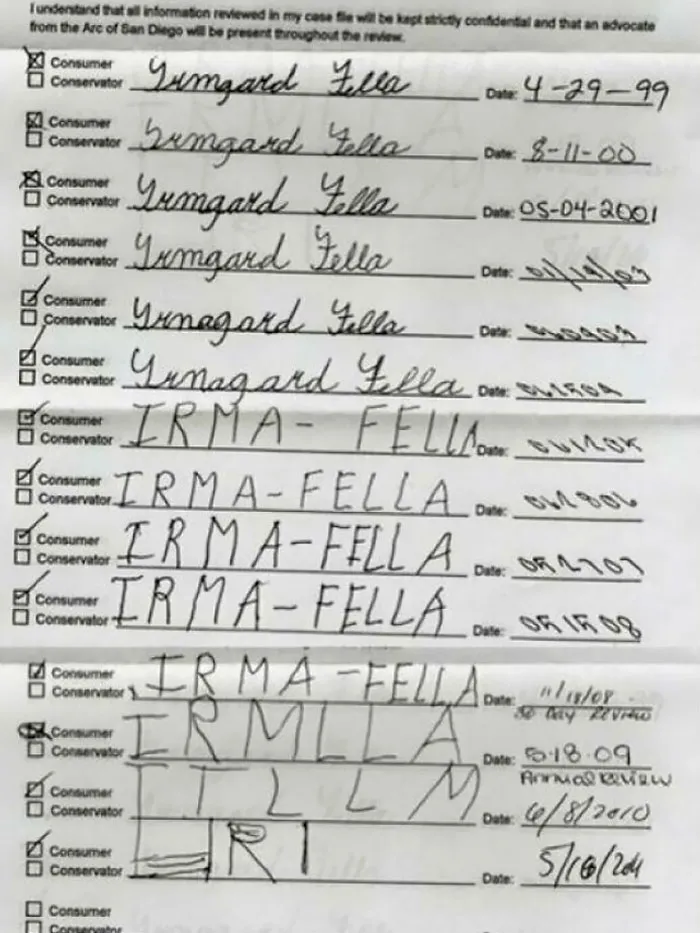 I understand that all information reviewed in my case file will be kept strictly confidential and that an advocate
from the Arc of San Diego will be present throughout the review.
Consumer
Conservator Yrmgard Fella Date: 4-29-99
Consumer
Conservator Yrmgard Fella Date: 8-11-00
Consumer
Conservator Yrmgard Fella Date: 05-04-2001
Consumer
Conservator Yrmgard Fella Date:
Consumer
Conservator Yrnagard Fella Date: 060403
Consumer
Conservator Yrnagard Fella Date: 061504
Consumer
Conservator IRMA- FELLA Date:
Consumer
Conservator IRMA-FELLA Date: 062806
Consumer
Conservator IRMA-FELLA Date: 052707
Consumer
Conservator IRMA-FELLA Date: 051508
Consumer
Conservator IRMA-FELLA Date: 11/18/08
30 DAY REVIEW
Consumer
Conservator IRMLLA Date: 5.18.09
Annual Review
Consumer
Conservator ITLLM Date: 6/8/2010
Consumer
Conservator RI Date: 5/16/2011
Consumer
Conservator